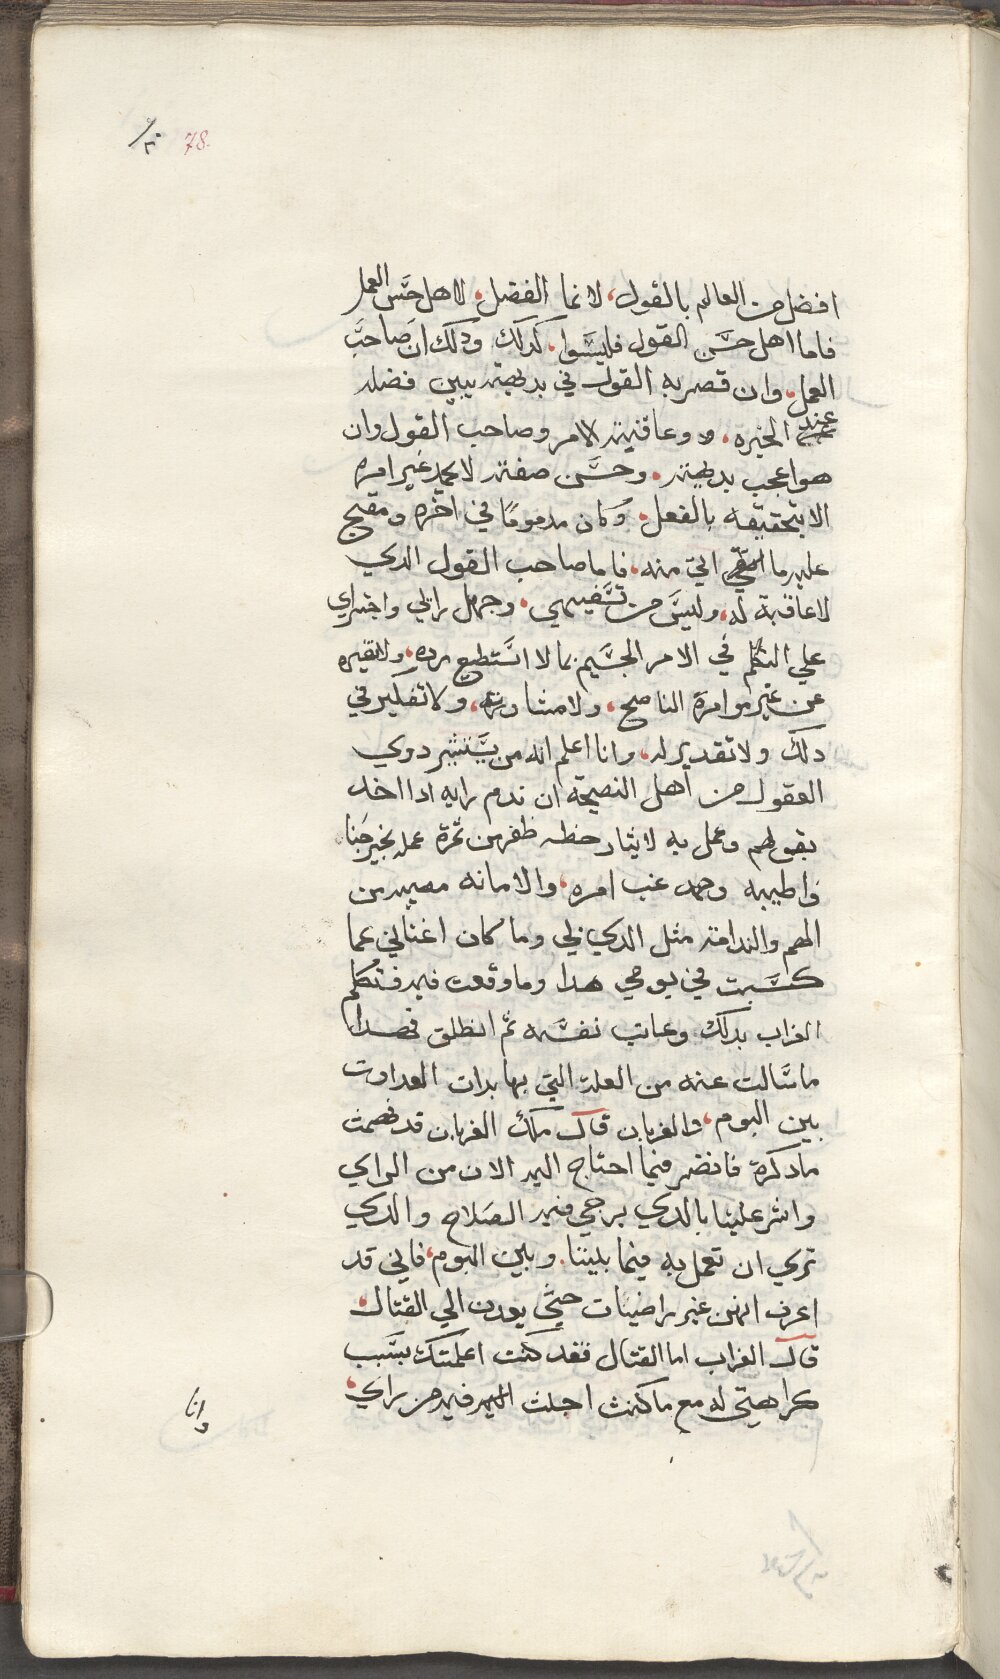 78
افضل من العالم بالقول، لانما الفضل، لاهل حسن العمل
فاما اهل حسن القول فليسوا، كدلك ودلك ان صاحب
العمل، وان قصر به القول في بديهته يبين فضله
عند الخبره، وعاقبته الامر وصاحب القول وان
هو اعجب بديهته، وحسن صفته لا يحمد غير امره
الا بتحقيقه بالفعل، وكان مدمومًا في اخره ومقبح
عليه ما التي منه، فاما صاحب القول الدي
لا عاقبة له، وليس من تسفيهي، وجهل رايي واجتراي
علي التكلم في الامر الجسيم بما لا استطيع مرده، ولا تغيره
عن غير موامرة الناصح، ولا مشاورته، ولا تفكير في
دلك ولا تقدير له، وانا اعلم انه من يستشير دوي
العقول من اهل النصيحة ان ندم رايه ادا اخد
بقولهم وعمل به لايثار حظه ظفر من ثمرة عمله بخير جنا
واطيبه وحمد غب امره، والا مانه مصيره من
الهم والندامة مثل الدي لي وما كان اغناني عما
كسبت في يومي هدا وما وقعت فيه فتكلم
الغراب بدلك وعاتب نفسه ثم انطلق فهدا
ما سالت عنه من العلة التي بها بدات العداوت
بين البوم، والغربان قال ملك الغربان قد فهمت
ما دكرة فانضر فيما احتاج اليه الان من الراي
واشر علينا بالدي يرجي فيه الصلاح والدي
تري ان تعمل به فيما بيننا، وبين البوم، فاني قد
اعرف انهن غير راضيات حتي يعدن الي القتال،
قال الغراب اما القتال فقد كنت اعلمتك بسبب
كراهيتي له مع ما كنت اجلت اليه فيه من راي،
وانا